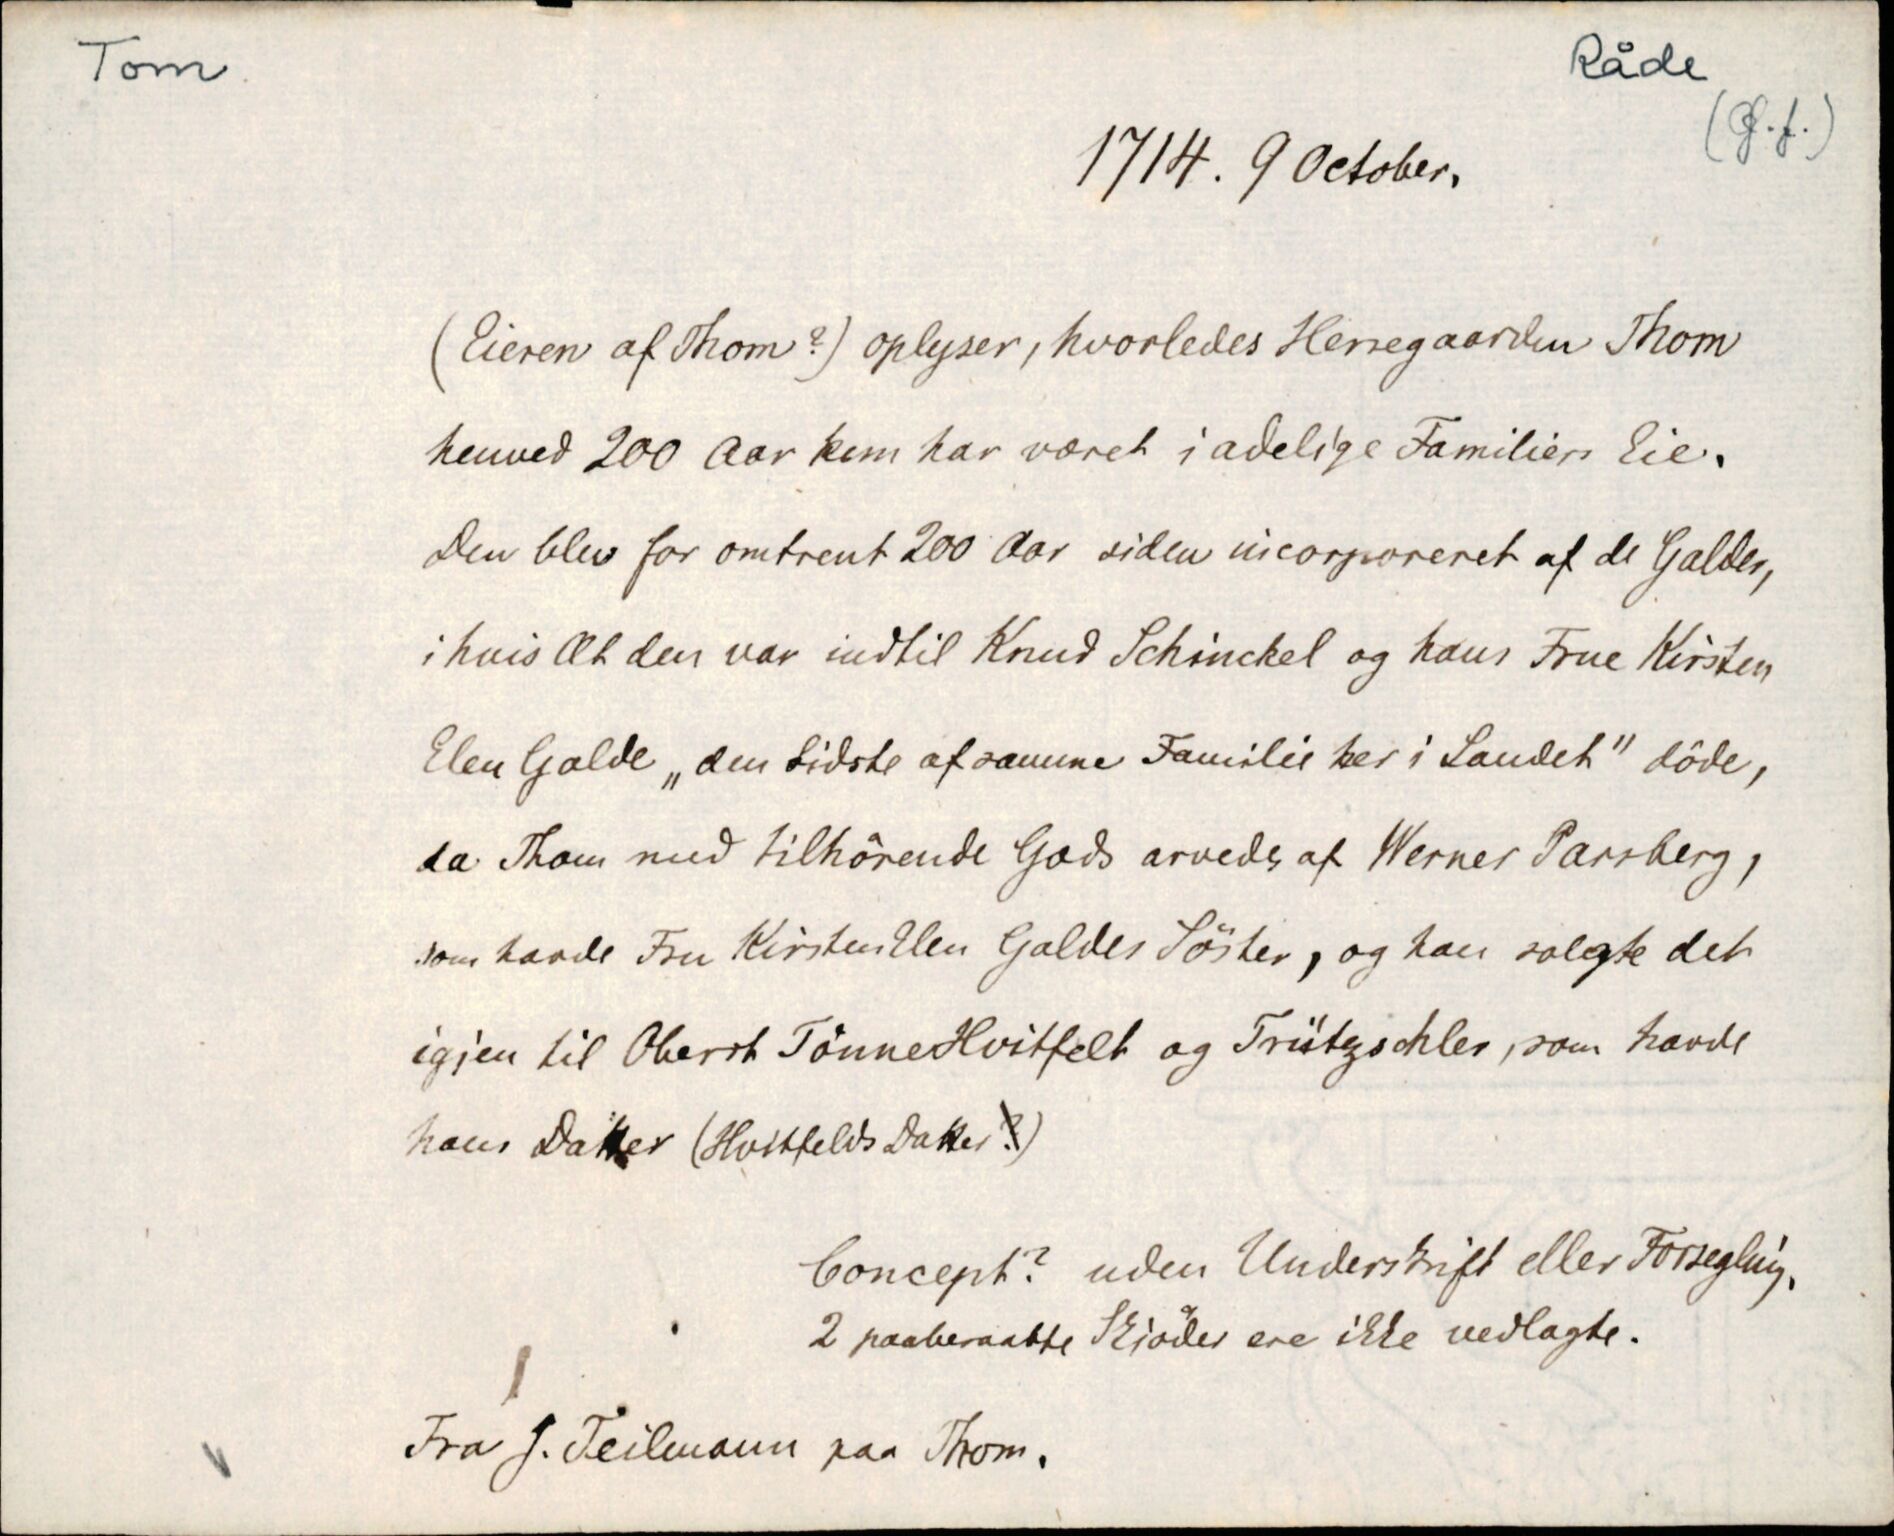 Tom
Råde
(G.f.)
1714. 9 October.
(Eieren af Thom?) oplyser, hvorledes Herregaarden Thom
henved 200 Aar kun har været i adelige Familiers Eie.
Den blev for omtrent 200 Aar siden incorporeret af de Galder,
i hvis Æt den var indtil Knud Schinckel og hans Frue Kirsten
Elen Galde „den sidste af samme Familie her i Landet" döde,
da Thom med tilhörende Gods arvedes af Werner Parsberg,
som havde Fru Kirsten Elen Galdes Söster, og han solgte det
igjen til Oberst Tönne Hvitfelt og Trützschler, som havde
hans Datter (Hvitfelds Datter?)
Concept? uden Underskrift eller Forsegling.
2 paaberaabte Skjöder ere ikke vedlagte.
Fra J. Teilmann paa Thom.